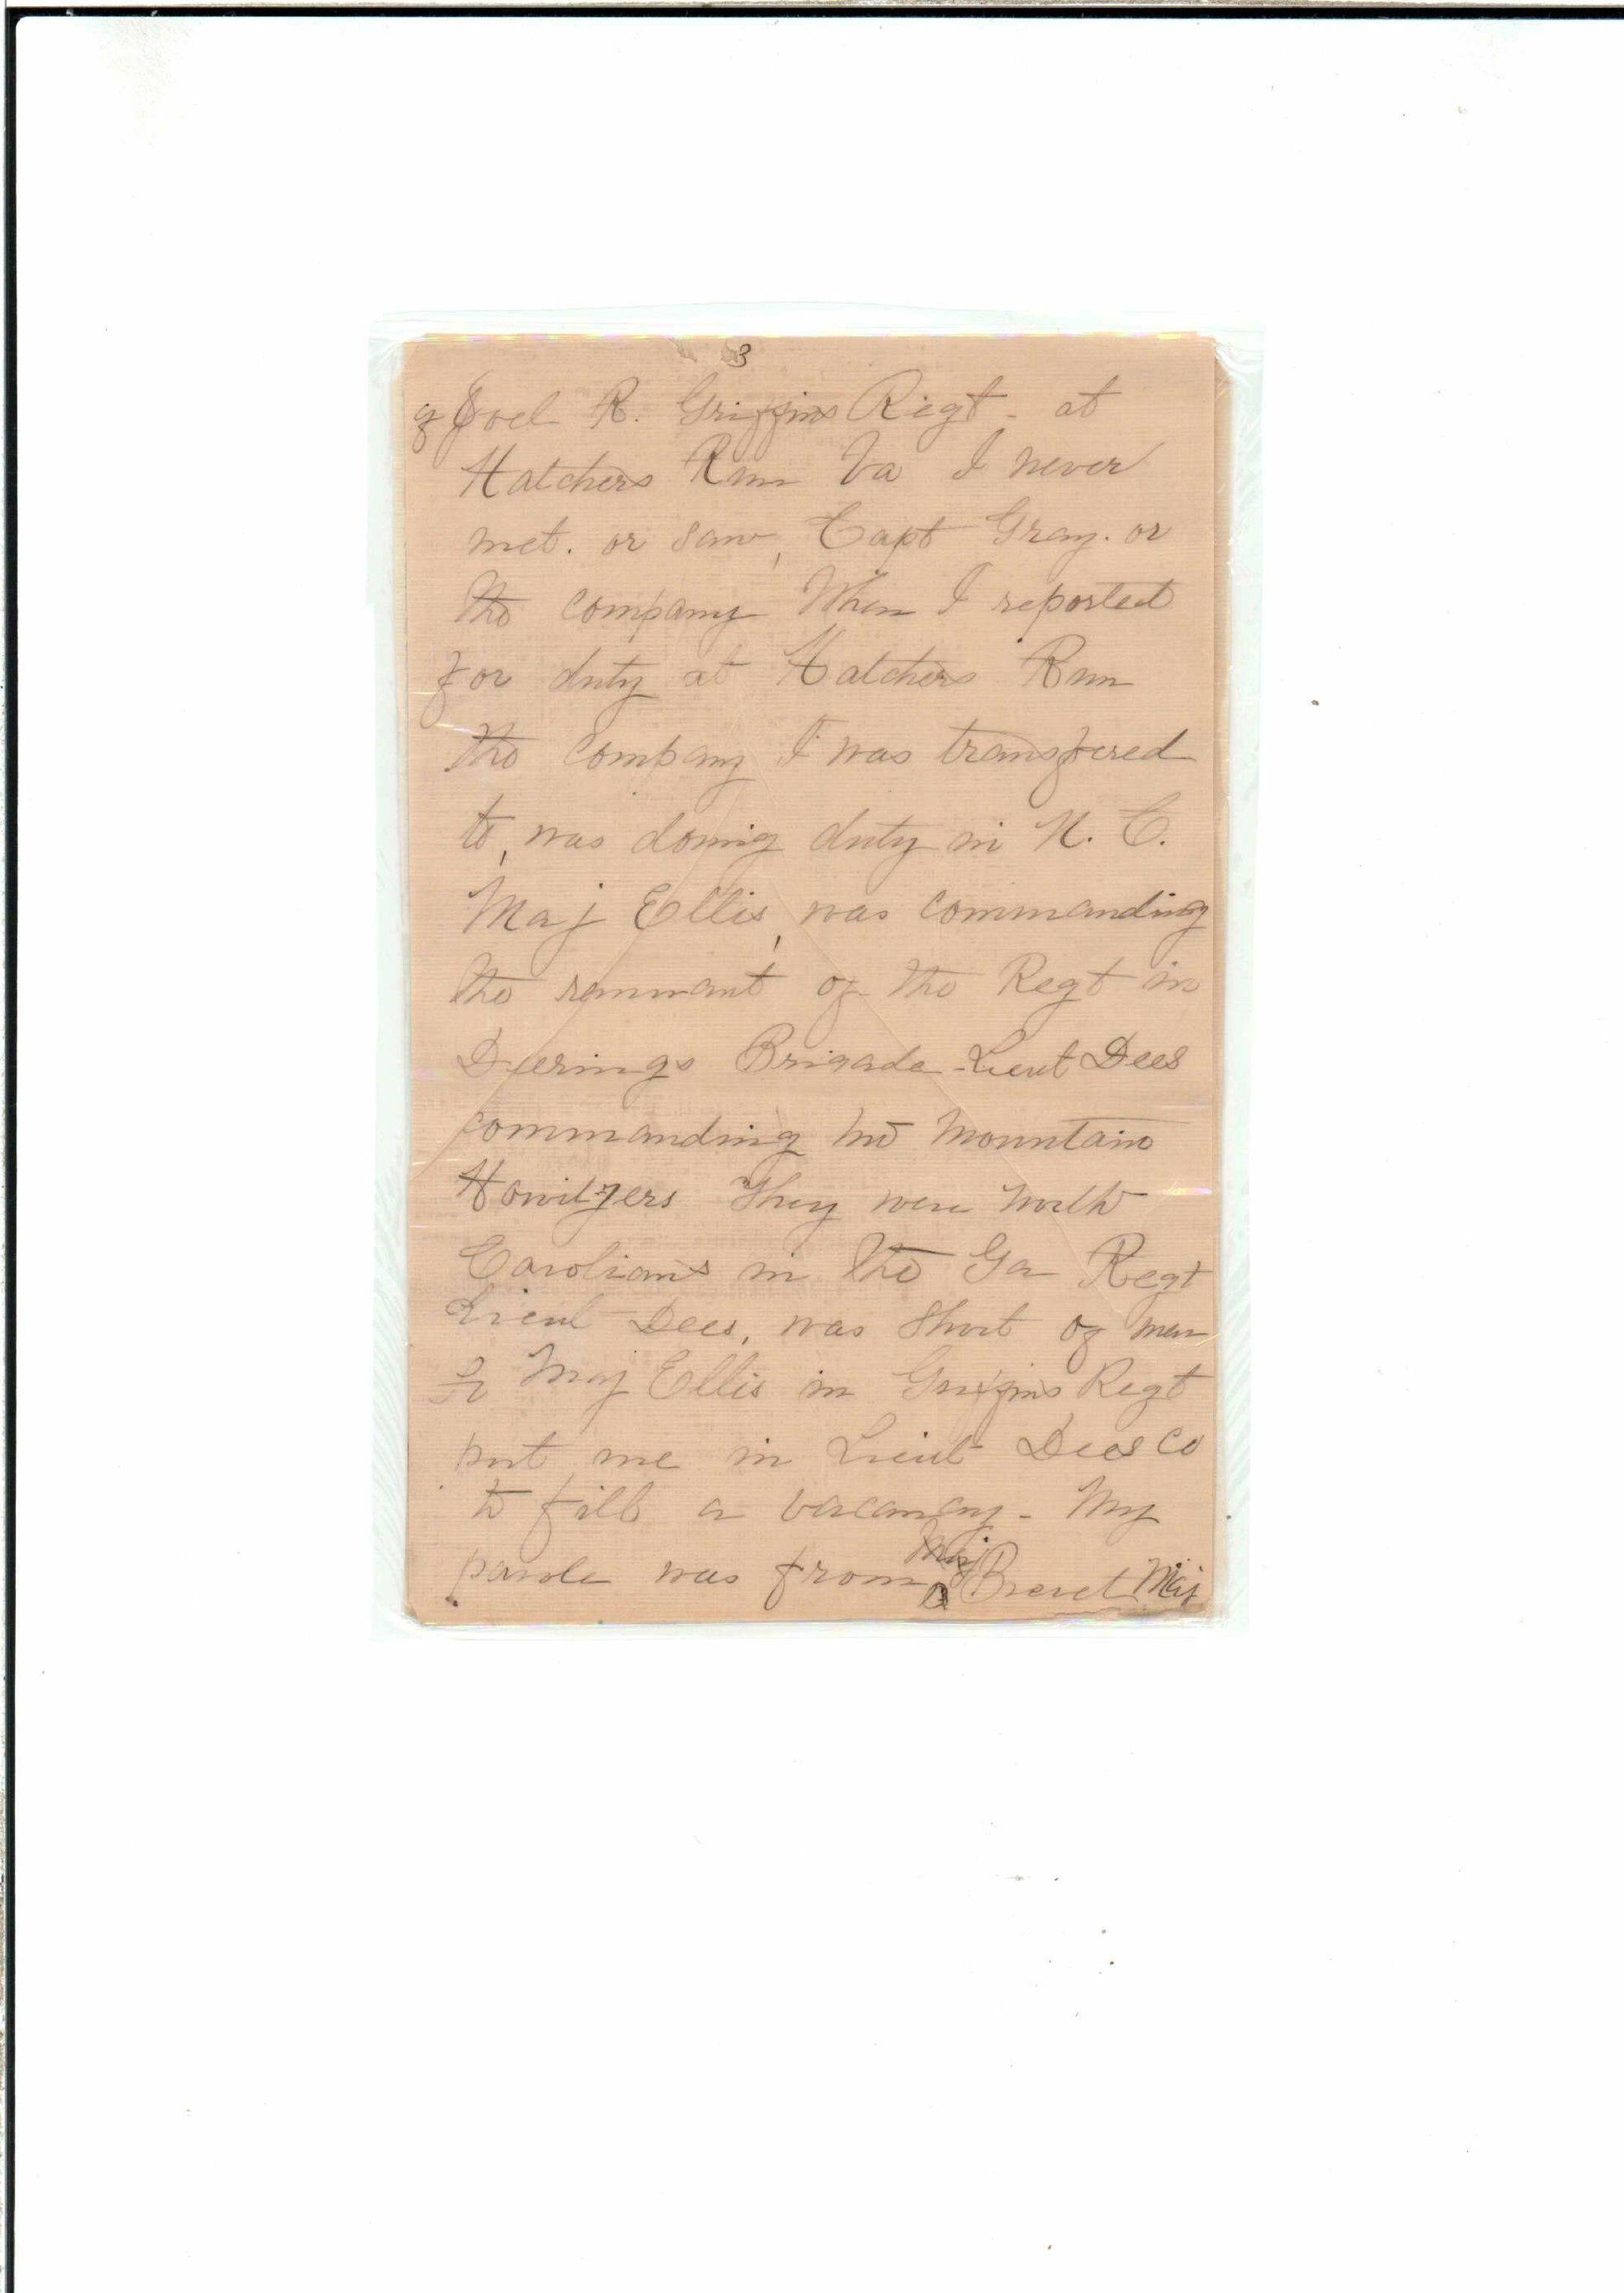 3
of Joel R. Griffins Regt - at
Hatchers Run Va I never
met. or saw, Capt Gray. or
the company When I reported
for duty at Hatchers Run
the company I was transfered
to, was doing duty in N. C.
Maj Ellis, was commanding
the remnant of the Regt in
Deerings Brigade - Lieut Dees
commanding two Mountain
Howitzers They were North
Carolians in the Ga Regt
Lieut Dees, was short of men
So Maj Ellis in Griffins Regt
put me in Lieut Dees Co
to fill a vacancy - My
Maj
parole was from Brevet Maj